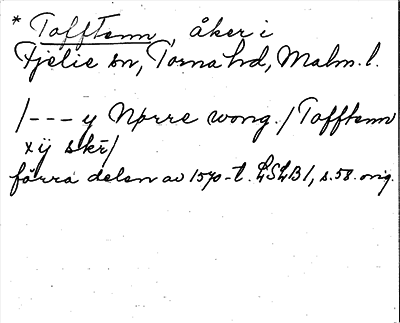 * Tofftenn, åker i
Fjelie sn, Torna hd, Malm. l.
/--- y Nørre wong. / Tofftenn
xij skr/
förra delen av 1570-t. LSLB 1, s. 58. orig.